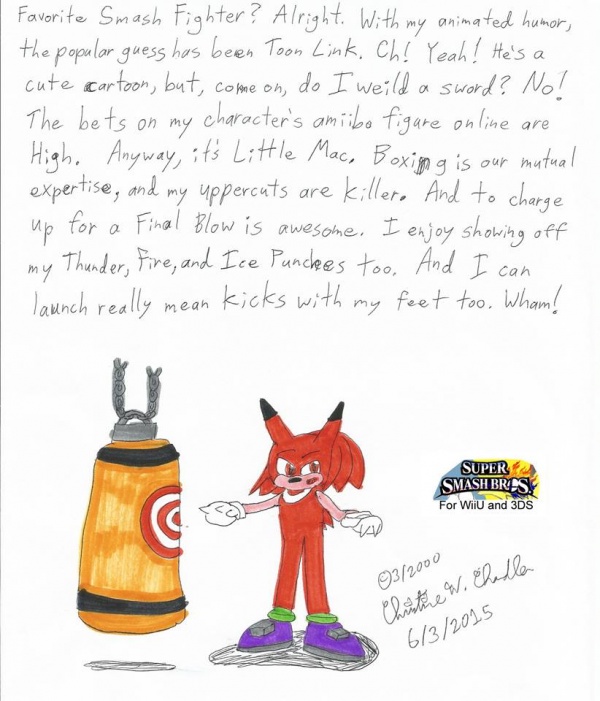 Favorite Smash Fighter? Alright. With my animated humor,
the popular guess has been Toon Link. Ch! Yeah! He's a
cute cartoon, but, come on, do I weild a sword? No!
The bets on my character's amiibo figure online are
High. Anyway, it's Little Mac. Boxing is our mutual
expertise, and my uppercuts are killer. And to charge
up for a Final Blow is awesome. I enjoy showing off
my Thunder, Fire, and Ice Punches too. And I can
launch really mean kicks with my feet too. Wham!
SUPER
SMASH BROS.
For WiiU and 3DS
©3/2000
Christine W. Chandler
6/3/2015